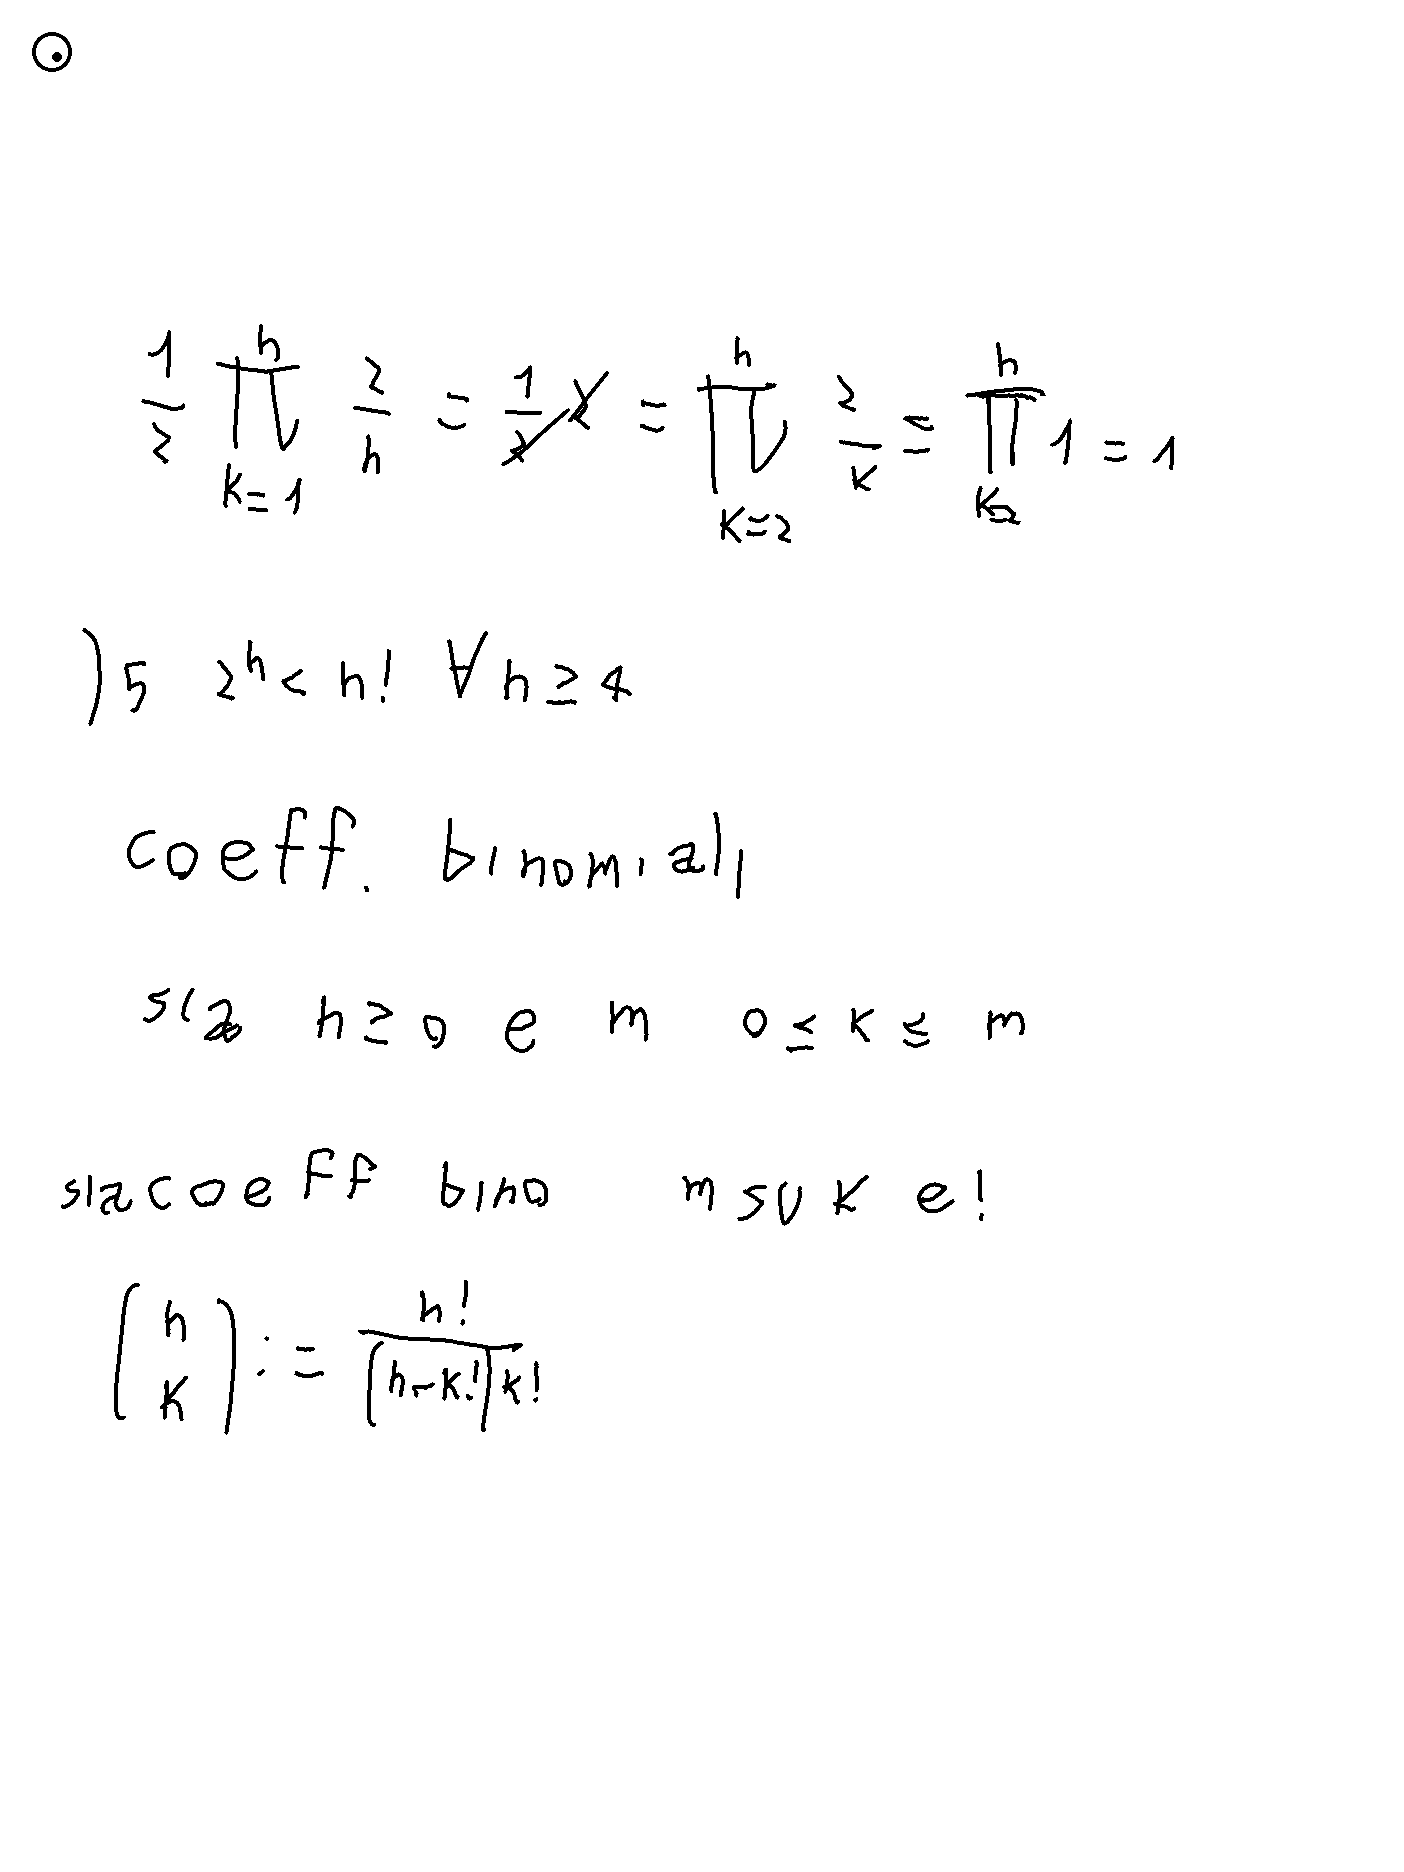 1/2 ∏_{k=1}^{h} 2/h = 1/2 2 = ∏_{k=2}^{h} 2/k ≤ ∏_{k=2}^{h} 1 = 1
)5 2^h < h! ∀ h ≥ 4
coeff. binomiali
sia h ≥ 0 e m 0 ≤ k ≤ m
sia coeff bino m su k e!
(h k) := h! / (h-k!) k!